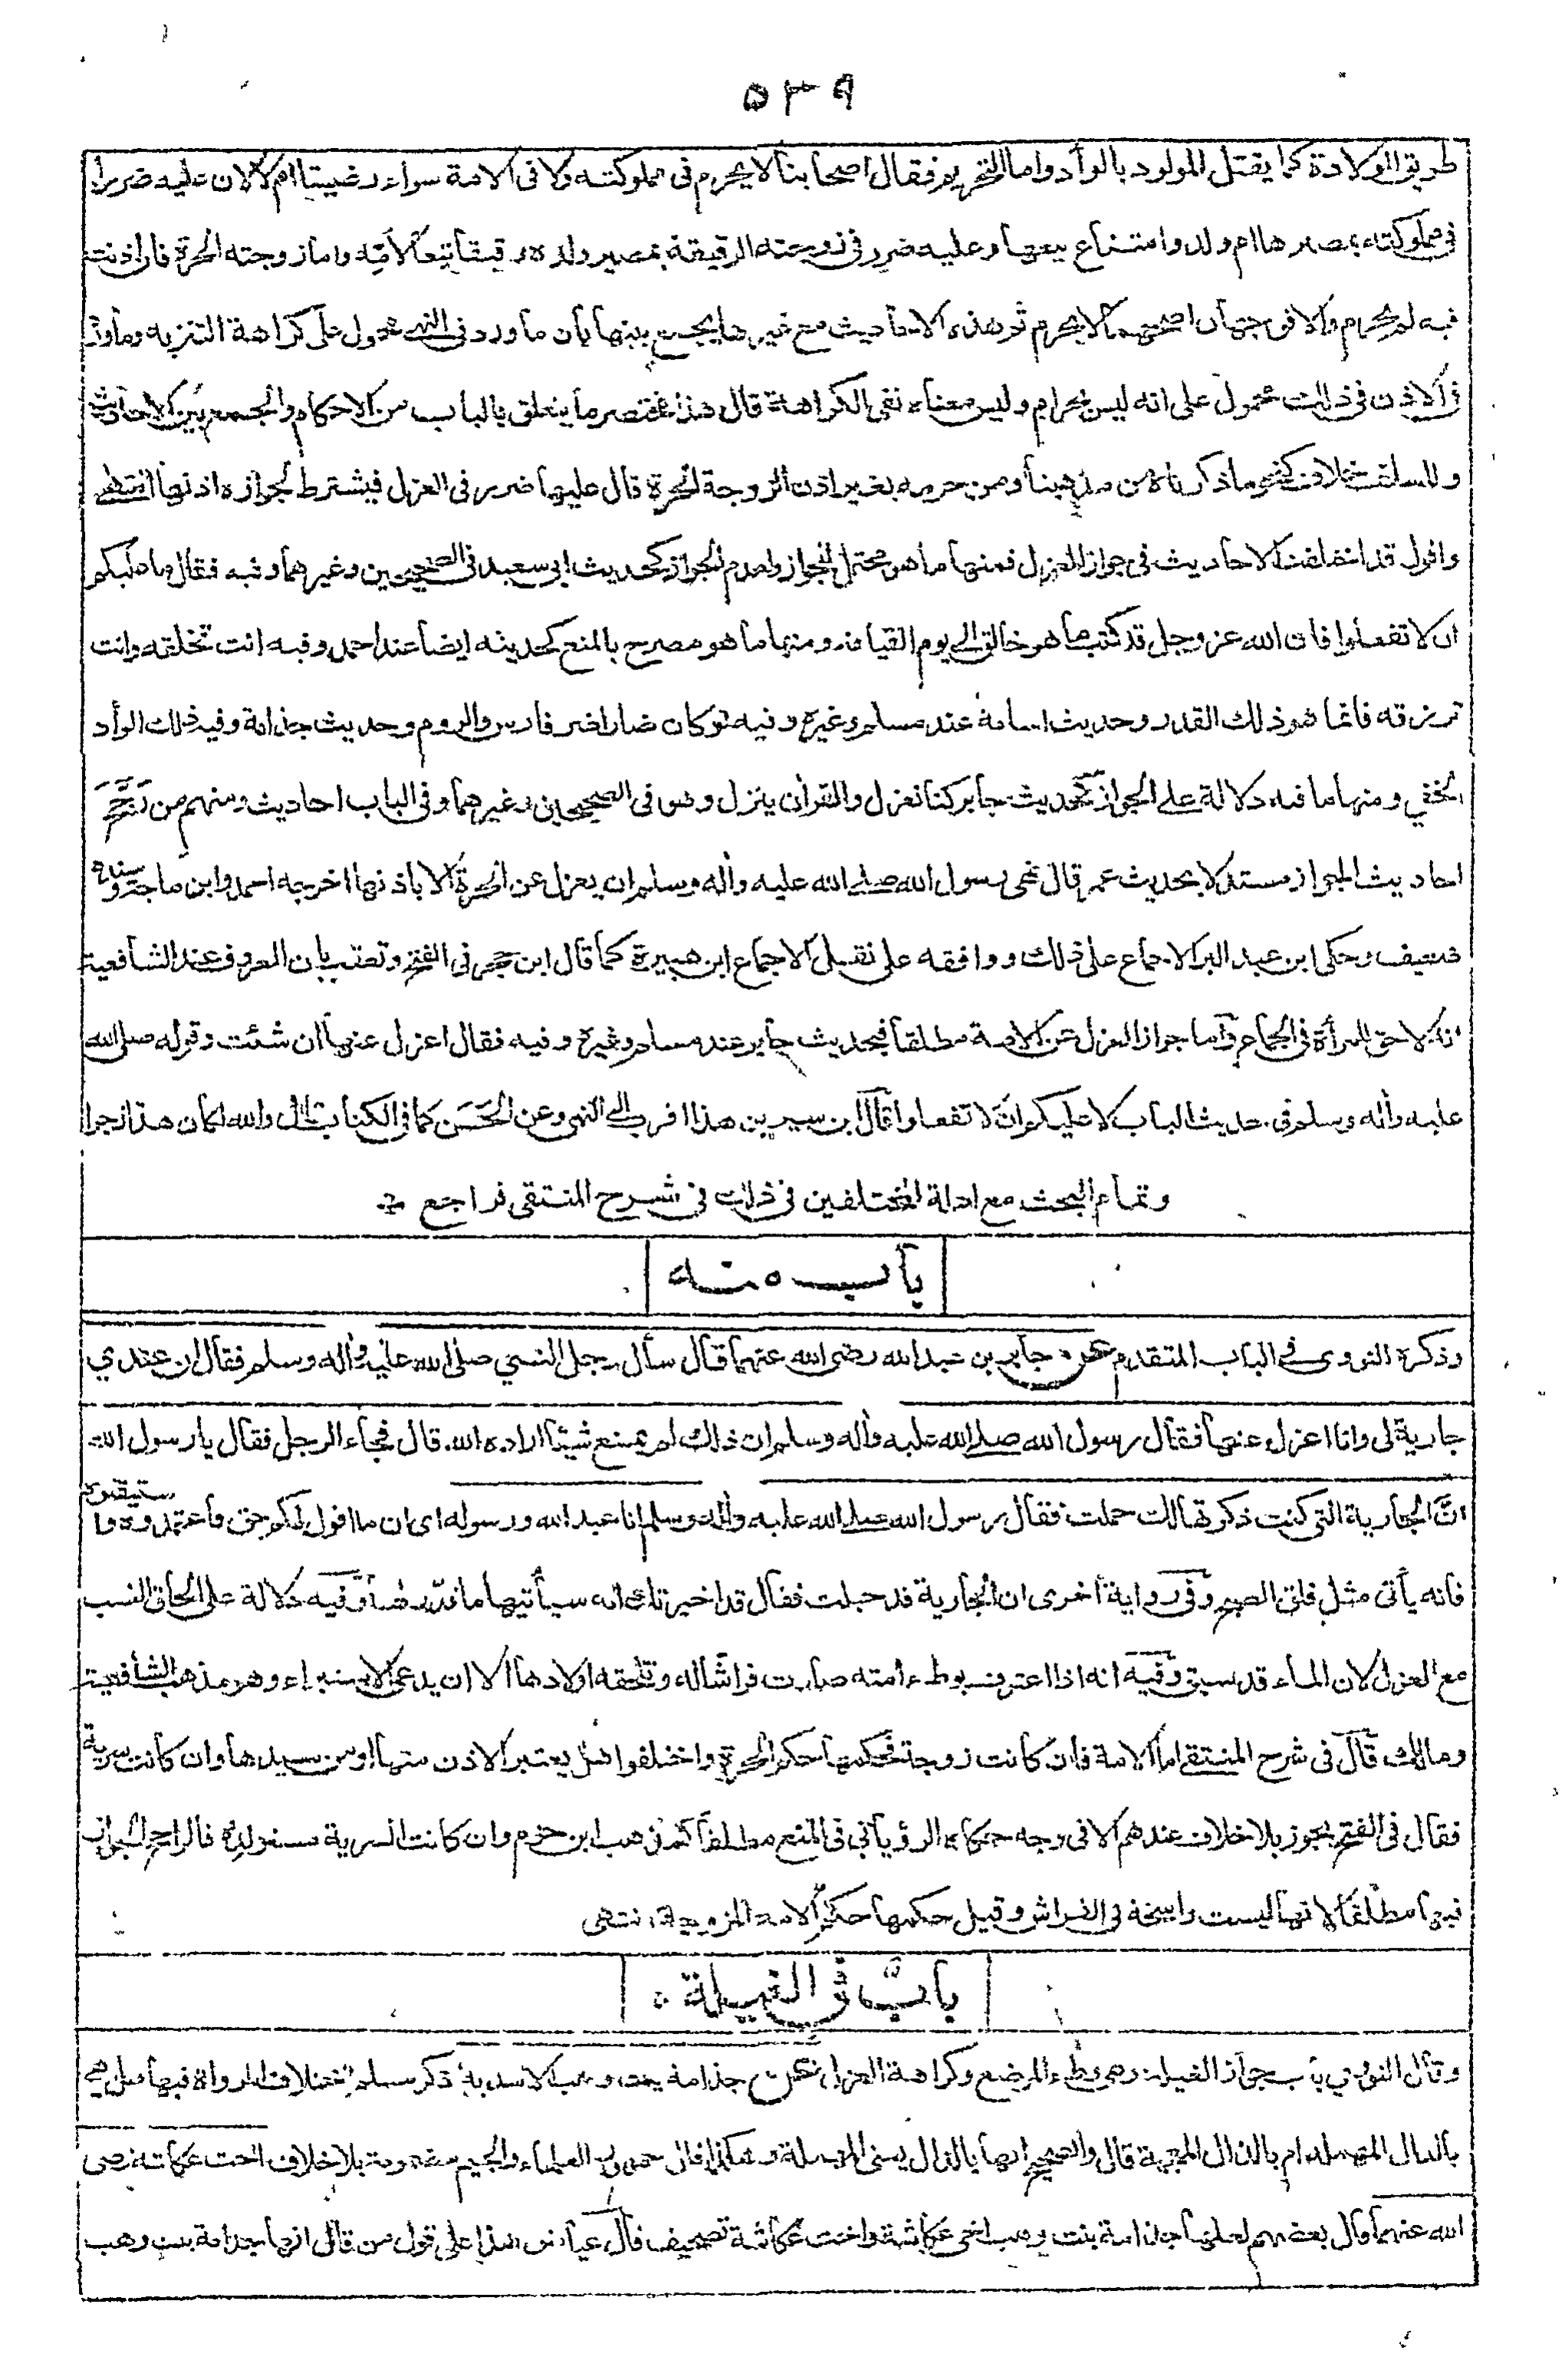 ٥٣٩
طريق الولادة كما يقتل المولود بالوأد واما التحريم فقال اصحابنا لا يحرم فى مملوكته ولا فى الامة سواء رضيتا ام لا لان عليه ضررا
فى مملوكته بمصيرها ام ولد وامتناع بيعها وعليه ضرر فى زوجته الرقيقة بمصير ولده رقيقا تبعا لامه واما زوجته الحرة فان اذنت
فيه لم يحرم والا فوجهان اصحهما لا يحرم ثم هذه الاحاديث مع غيرها يجمع بينها بان ما ورد فى النهى محمول على كراهة التنزيه وما ورد
فى الاذن فى ذلك محمول على انه ليس بحرام وليس معناه نفى الكراهة قال هذا مختصر ما يتعلق بالباب من الاحكام والجمع بين الاحاديث
وللسلف خلاف كنحو ما ذكرناه من مذهبنا ومن حرمه بغير اذن الزوجة الحرة قال عليها ضرر فى العزل فيشترط لجوازه اذنها انتهى
واقول قد اختلفت الاحاديث فى جواز العزل فمنها ما هو محتمل للجواز ولعدم الجواز كحديث ابى سعيد فى الصحيحين وغيرهما وفيه فقال ما عليكم
ان لا تفعلوا فان الله عز وجل قد كتب ما هو خالق الى يوم القيامة ومنها ما هو مصرح بالمنع كحديثه ايضا عند احمد وفيه انت تخلقه وانت
ترزقه فانما هو ذلك القدر وحديث اسامة عند مسلم وغيره وفيه لو كان ضارا ضر فارس والروم وحديث جذامة وفيه ذلك الوأد
الخفي ومنها ما فيه دلالة على الجواز كحديث جابر كنا نعزل والقرأن ينزل وهو فى الصحيحين وغيرهما وفى الباب احاديث ومنهم من رَجَّحَ
احاديث الجواز مستدلا بحديث عمر قال نهى رسول الله صلى الله عليه وأله وسلم ان يعزل عن الحرة الا باذنها اخرجه احمد وابن ماجة وسنده
ضعيف وحكى ابن عبد البر الاجماع على ذلك ووافقه على نقل الاجماع ابن هبيرة كما قال ابن حجر فى الفتح وتعقب بان المعروف عند الشافعية
انه لا حق للمرأة فى الجماع وأما جواز العزل عن الامة مطلقا فبحديث جابر عند مسلم وغيره وفيه فقال اعزل عنها ان شئت وقوله صلى الله
عليه وأله وسلم فى حديث الباب لا عليكم ان لا تفعلوا قال ابن سيرين هذا اقرب الى النهى وعن الحَسَن كما فى الكتاب قال والله لكان هذا زجرا
وتمام البحث مع ادلة المختلفين فى ذلك فى شرح المنتقى فراجع
باب منه
وذكره النووى فى الباب المتقدم عن جابر بن عبد الله رضى الله عنهما قال سأل رجل النبي صلى الله عليه وأله وسلم فقال ان عندي
جارية لى وانا اعزل عنها فقال رسول الله صلى الله عليه وأله وسلم ان ذلك لم يمنع شيئا اراده الله قال فجاء الرجل فقال يا رسول الله
انَّ الجارية التى كنت ذكرتها لك حملت فقال رسول الله صلى الله عليه وأله وسلم انا عبد الله ورسوله اى ان ما اقول لكم حق فاعتمدوه واستيقنوه
فانه يأتى مثل فلق الصبح وفى رواية أخرى ان الجارية قد حبلت فقال قد اخبرتك انه سيأتيها ما قدّر لها وفيه دلالة على الحاق النسب
مع العزل لان الماء قد سبق وفيه انه اذا اعترف بوطء امته صارت فراشا له وتلحقه اولادها الا ان يدعى الاستبراء وهو مذهب الشافعية
ومالك قال فى شرح المنتقى اما الامة فان كانت زوجة فحكمها حكم الحرة واختلفوا هل يعتبر الاذن منها او من سيدها وان كانت سرية
فقال فى الفتح يجوز بلا خلاف عندهم الا فى وجه حكاه الرؤيانى فى المنع مطلقا كمذهب ابن حزم وان كانت السرية مستولدة فالراجح الجواز
فيها مطلقا لانها ليست راسخة فى الفراش وقيل حكمها حكم الامة المزوجة انتهى
بابٌ فى الغيلة
وقال النووى باب جواز الغيلة وهى وطء المرضع وكراهة العزل عن جذامة بنت وهب الاسدية ذكر مسلم اختلاف الرواة فيها هل هى
بالدال المهملة ام بالذال المعجمة قال والصحيح انها بالدال يعنى المهملة وهكذا قال جمهور العلماء والجيم مضمومة بلا خلاف اخت عكاشة رضى
الله عنهما وقال بعضهم لعلها جذامة بنت وهب اخى عكاشة واخت عكاشة تصحيف قال عياض هذا على قول من قال انها جدامة بنت وهب